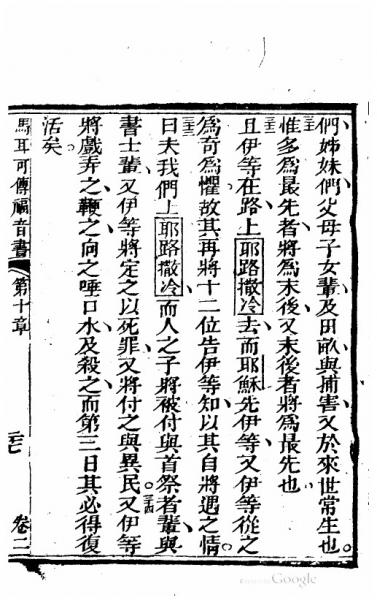 們姊妹們父母子女輩及田畝與捕害又於來世常生也。
三一惟多爲最先者將爲末後又末後者將爲最先也
三二且伊等在路上耶路撒冷去而耶穌先伊等又伊等從之
爲奇爲懼故其再將十二位告伊等知以其自將遇之情。
三三曰夫我們上耶路撒冷而人之子將被付與首祭者輩與
書士輩又伊等將定之以死罪又將付之與異民三四又伊等
將戲弄之鞭之向之唾口水及殺之而第三日其必得復
活矣。
馬耳可傳福音書 第十章 卷二
Google